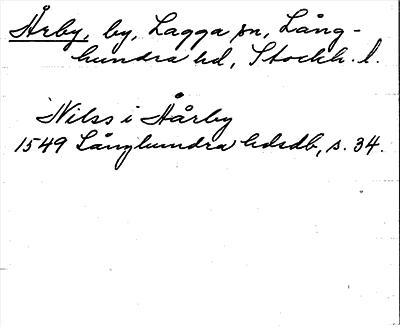 Årby, by, Lagga sn, Lång-
hundra hd, Stockh. l.
Nilss i Aårby
1549 Långhundra hdsdb, s. 34.